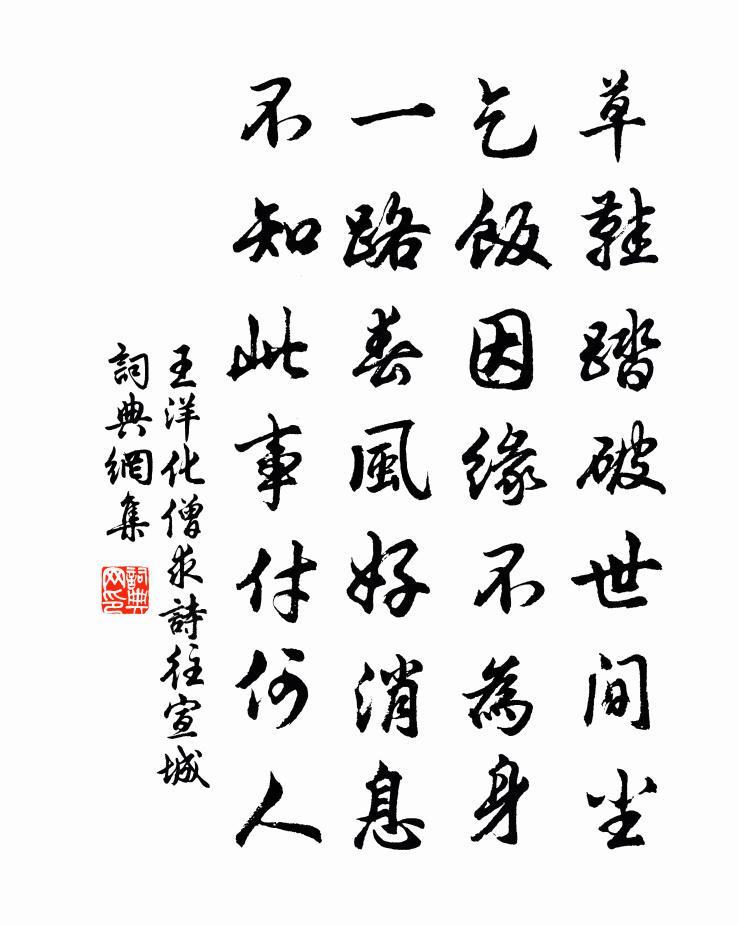 草鞋踏破世間尘
乞飯因緣不為身
一路春風好消息
不知此事付何人
王洋化僧求詩往宣城
詞典網集
詞典网印